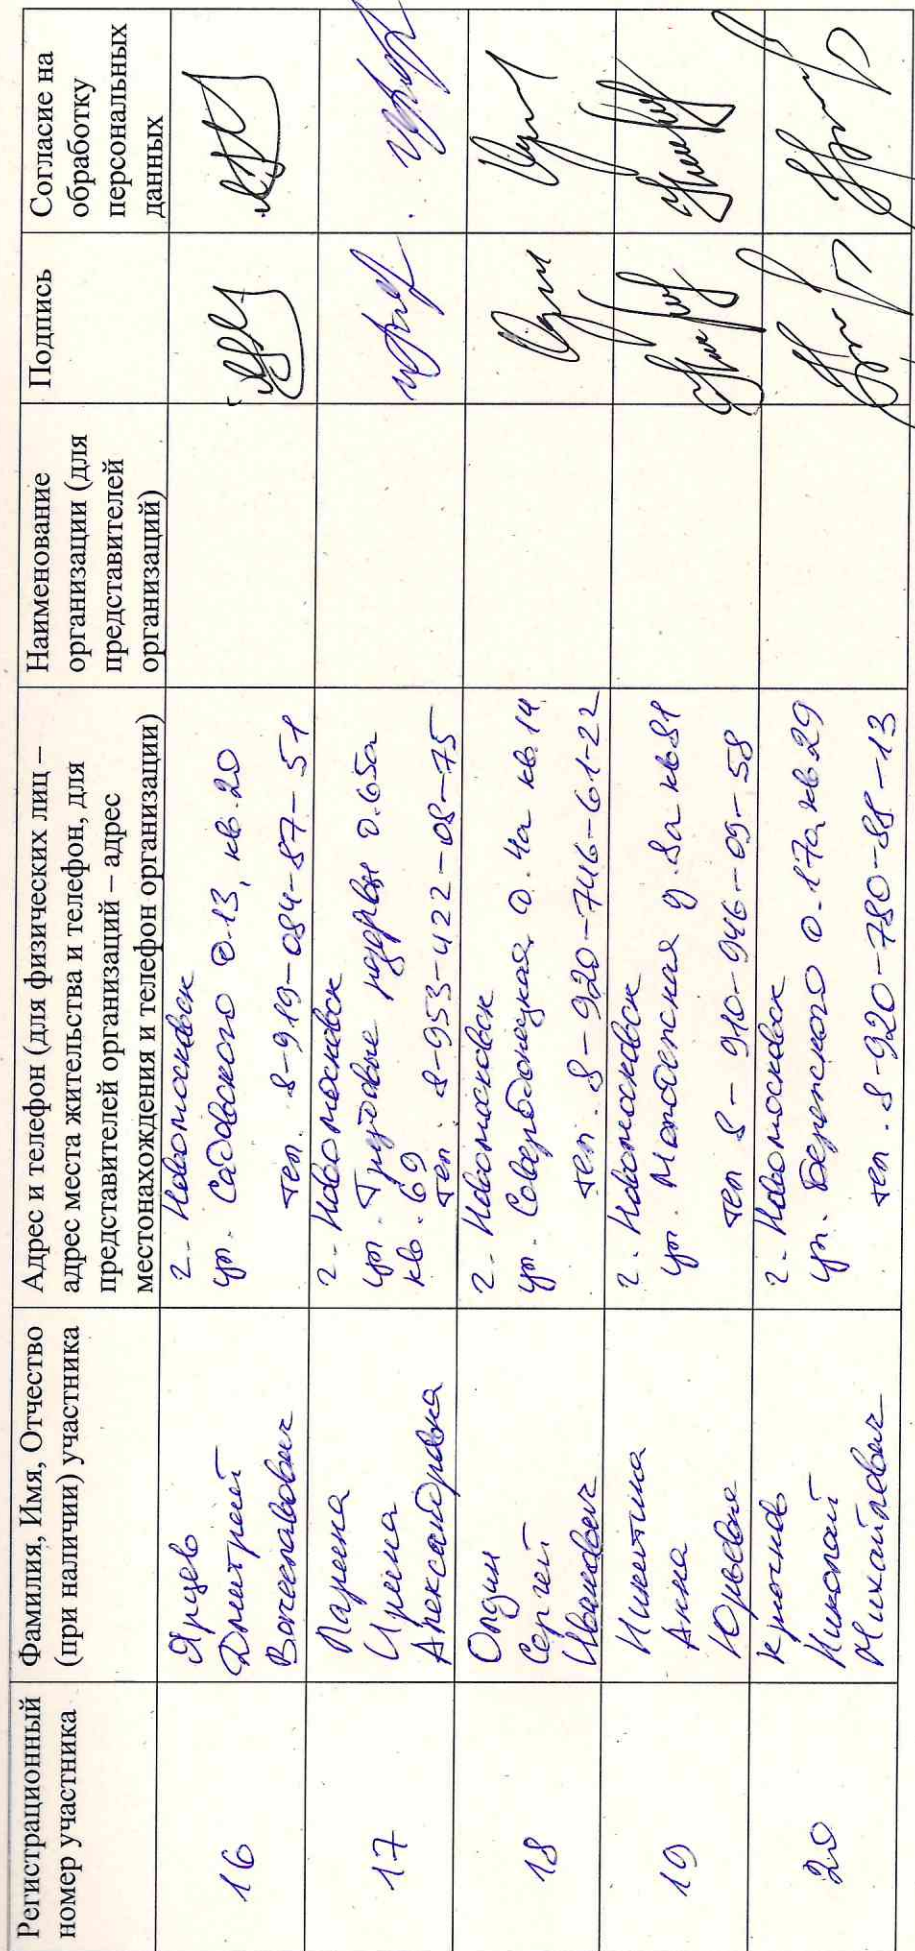 Регистрационный
номер участника
Фамилия, Имя, Отчество
(при наличии) участника
Адрес и телефон (для физических лиц –
адрес места жительства и телефон, для
представителей организаций – адрес
местонахождения и телефон организации)
Наименование
организации (для
представителей
организаций)
Подпись
Согласие на
обработку
персональных
данных
16
Ярцев
Дмитрий
Вячеславович
г. Новомосковск
ул. Садовского д.13, кв.20
тел. 8-919-084-87-51
17
Ларина
Ирина
Александровна
г. Новомосковск
ул. Трудовые резервы д.65а
кв. 69
тел. 8-953-422-08-75
18
Сергей
Иванович
г. Новомосковск
ул. д. 4а кв.14
тел. 8-920-746-61-22
19
Никитина
Анна
Юрьевна
г. Новомосковск
ул. д. 8а кв 81
тел 8-910-946-09-58
20
Николай
Михайлович
г. Новомосковск
ул. д.17а кв.29
тел. 8-920-780-88-13